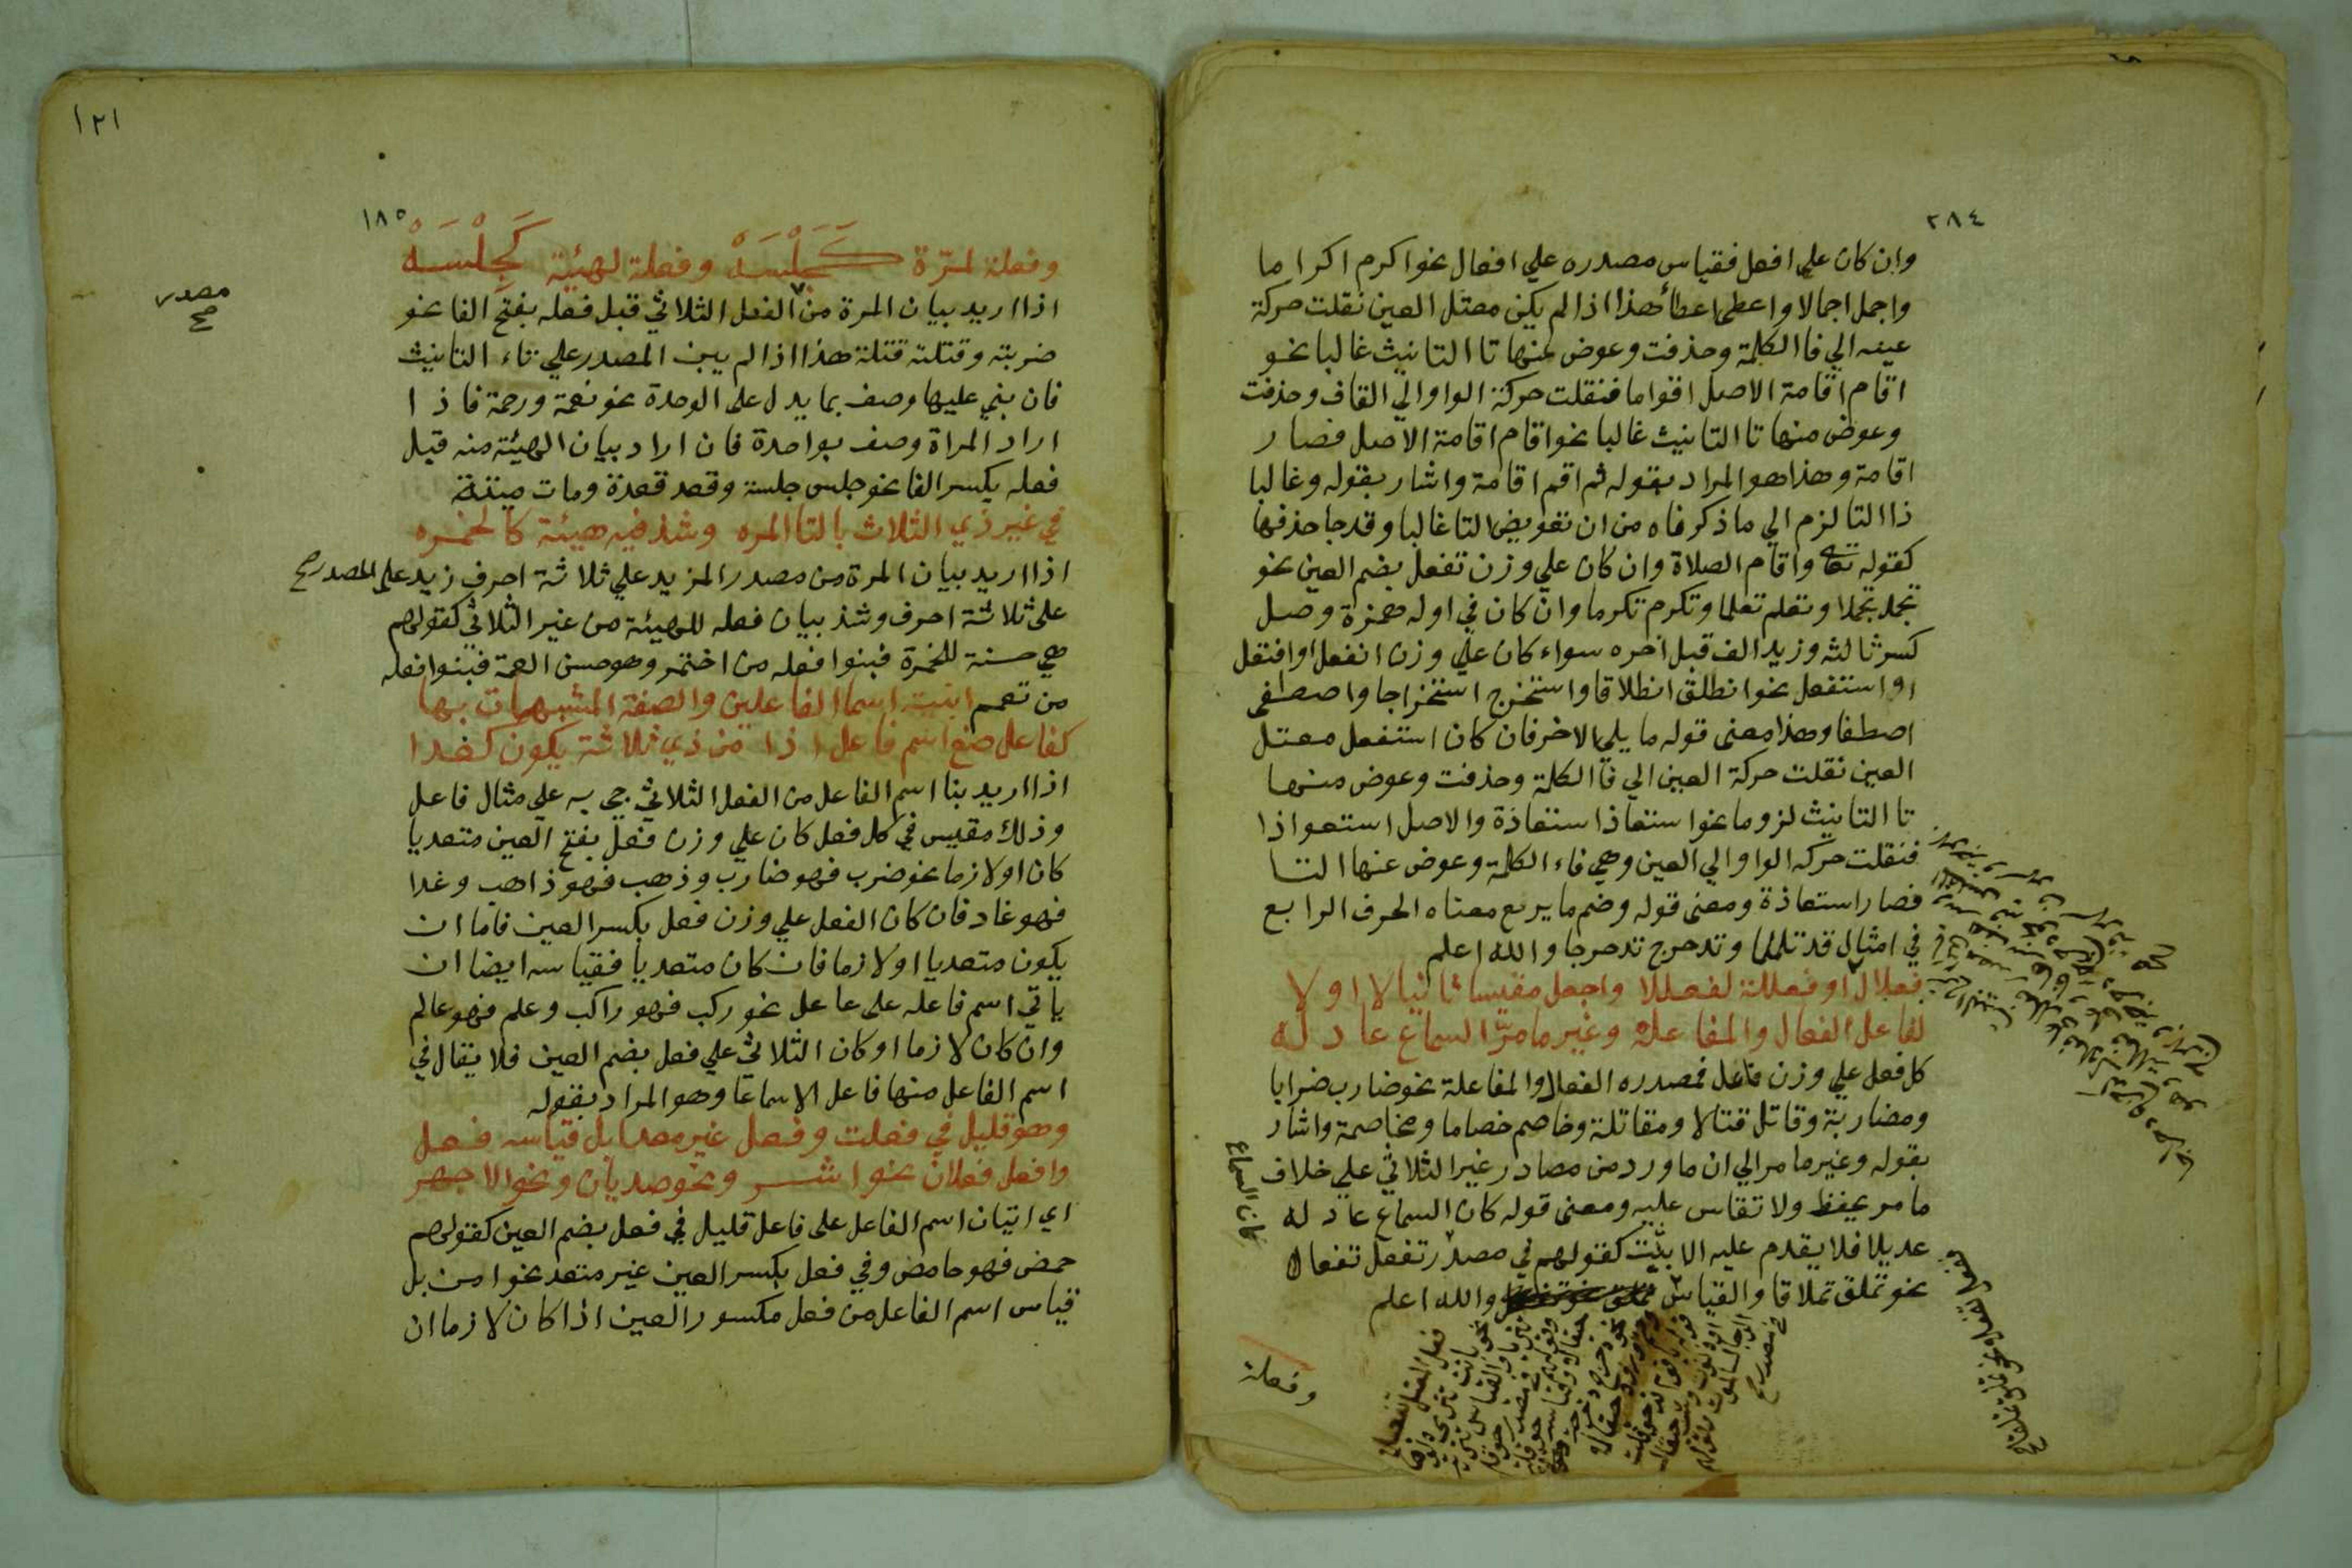 ٢٨٤
وان كان علي افعل فقياس مصدره علي افعال نحو اكرم اكراما
واجمل اجمالا واعطى اعطأ هذا اذا لم يكن معتل العين نقلت حركة
عينه الي فا الكلمة وحذفت وعوض عنها تا التانيث غالبا نحو
اقام اقامة الاصل اقواما فنقلت حركة الواو الي القاف وحذفت
وعوض منها تا التانيث غالبا نحو اقام اقامة الاصل فصار
اقامة وهذا هو المراد بقوله ثم اقم اقامة واشار بقوله وغالبا
ذا التا لزم الي ما ذكرناه من ان تعويض التا غالبا وقد جا حذفها
كقوله تعا واقام الصلاة وان كان علي وزن تفعل بضم العين نحو
تجمل تجملا وتعلم تعلما وتكرم تكرما وان كان في اوله همزة وصل
كسر ثالثه وزيد الف قبل اخره سواء كان علي وزن انفعل او افتعل
او استفعل نحو انطلق انطلاقا واستخرج استخراجا واصطفى
اصطفا وهذا معنى قوله ما يلي الاخر فان كان استفعل معتل
العين نقلت حركة العين الي فا الكلمة وحذفت وعوض منها
تا التانيث لزوما نحو استعاذ استعاذة والاصل استعواذا
فنقلت حركه الواو الي العين وهي فاء الكلمة وعوض عنها التا
فصار استعاذة ومعنى قوله وضم ما يربع معناه الحرف الرابع
في امثال قد تلملما وتدحرج تدحرجا والله اعلم
فعلال او فعللة لفعللا واجعل مقيسا ثانيا لا اولا
لفاعل الفعال والمفاعله وغير ما مر السماع عادله
كل فعل علي وزن فاعل فمصدره الفعال والمفاعلة نحو ضارب ضرابا
ومضاربة وقاتل قتالا ومقاتلة وخاصم خصاما ومخاصمة واشار
بقوله وغير ما مر الي ان ما ورد من مصادر غير الثلاثي علي خلاف
ما مر يحفظ ولا تقاس عليه ومعنى قوله كان السماع عادله
كان السماع
عديلا فلا يقدم عليه الا بثبت كقولهم في مصدر تفعل تفعال
نحو تملق تملاقا والقياس والله اعلم
وفعلة
١٢١
١٨٥
وفعلة لمرّة كَجَلْسَهْ وفعلة لهيئة كَجِلْسَهْ
اذا اريد بيان المرة من الفعل الثلاثي قبل فعله بفتح الفا نحو
مصدر
صح
ضربته وقتلته قتلة هذا اذا لم يبن المصدر علي تاء التانيث
فان بني عليها وصف بما يدل على الوحدة نحو نعمة ورحمة فاذا
اراد المراة وصف بواحدة فان اراد بيان الهيئة منه قبل
فعله بكسر الفا نحو جلس جلسة وقعد قعدة ومات ميتة
في غير ذي الثلاث بالتا المره وشذ فيه هيئة كالخمره
اذا اريد بيان المرة من مصدر المزيد علي ثلاثة احرف زيد على المصدر صح
على ثلاثة احرف وشذ بيان فعله للهيئة من غير الثلاثي كقولهم
هي حسنة للخمرة فبنوا فعله من اختمر وهو حسن العمة فبنوا فعله
من تعمم ابنية اسما الفاعلين والصفة المشبهات بها
كفاعل صغ اسم فاعل اذا من ذي ثلاثة يكون كغذا
اذا اريد بنا اسم الفاعل من الفعل الثلاثي جي به علي مثال فاعل
وذلك مقيس في كل فعل كان علي وزن فعل بفتح العين متعديا
كان او لازما نحو ضرب فهو ضارب وذهب فهو ذاهب وغدا
فهو غاد فان كان الفعل علي وزن فعل بكسر العين فاما ان
يكون متعديا او لازما فان كان متعديا فقياسه ايضا ان
ياتي اسم فاعله على عاعل نحو ركب فهو راكب وعلم فهو عالم
وان كان لازما او كان الثلاثي علي فعل بضم العين فلا يقال في
اسم الفاعل منها فاعل الا سماعا وهو المراد بقوله
وهو قليل في فعلت وفعل غير معدا بل قياسه فعل
وافعل فعلان نحو اشر ونحو صديان ونحو الاجهر
اي اتيان اسم الفاعل على فاعل قليل في فعل بضم العين كقولهم
حمض فهو حامض وفي فعل بكسر العين غير متعد نحو امن بل
قياس اسم الفاعل من فعل مكسور العين اذا كان لازما ان